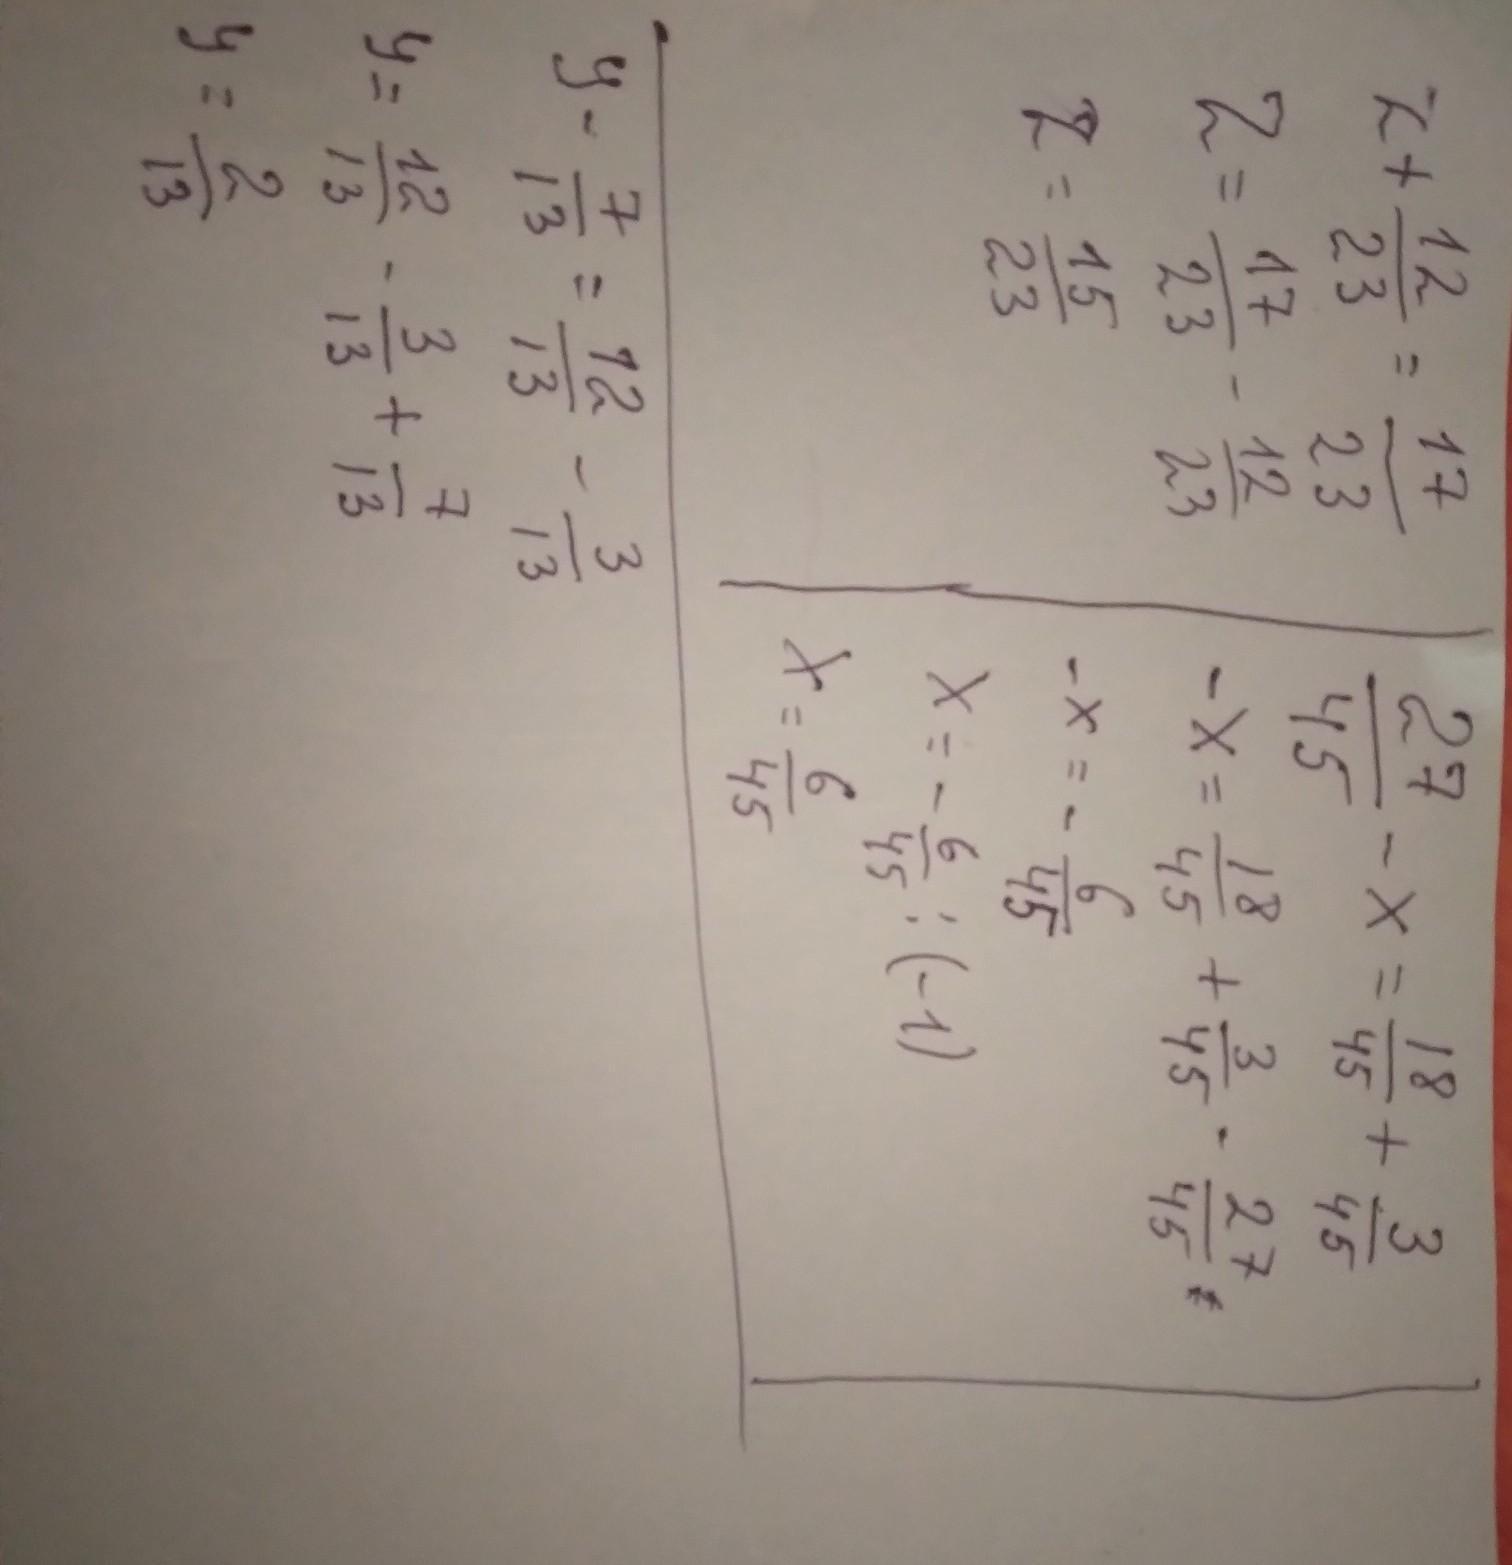 z + 12/23 = 17/23
z = 17/23 - 12/23
z = 15/23
27/45 - x = 18/45 + 3/45
-x = 18/45 + 3/45 - 27/45
-x = - 6/45
x = - 6/45 : (-1)
x = 6/45
y - 7/13 = 12/13 - 3/13
y = 12/13 - 3/13 + 7/13
y = 2/13